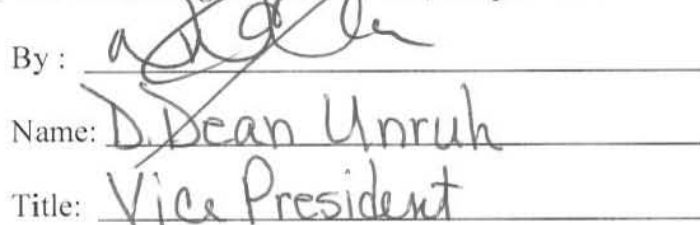 By :
Name: D. Dean Unruh
Title: Vice President